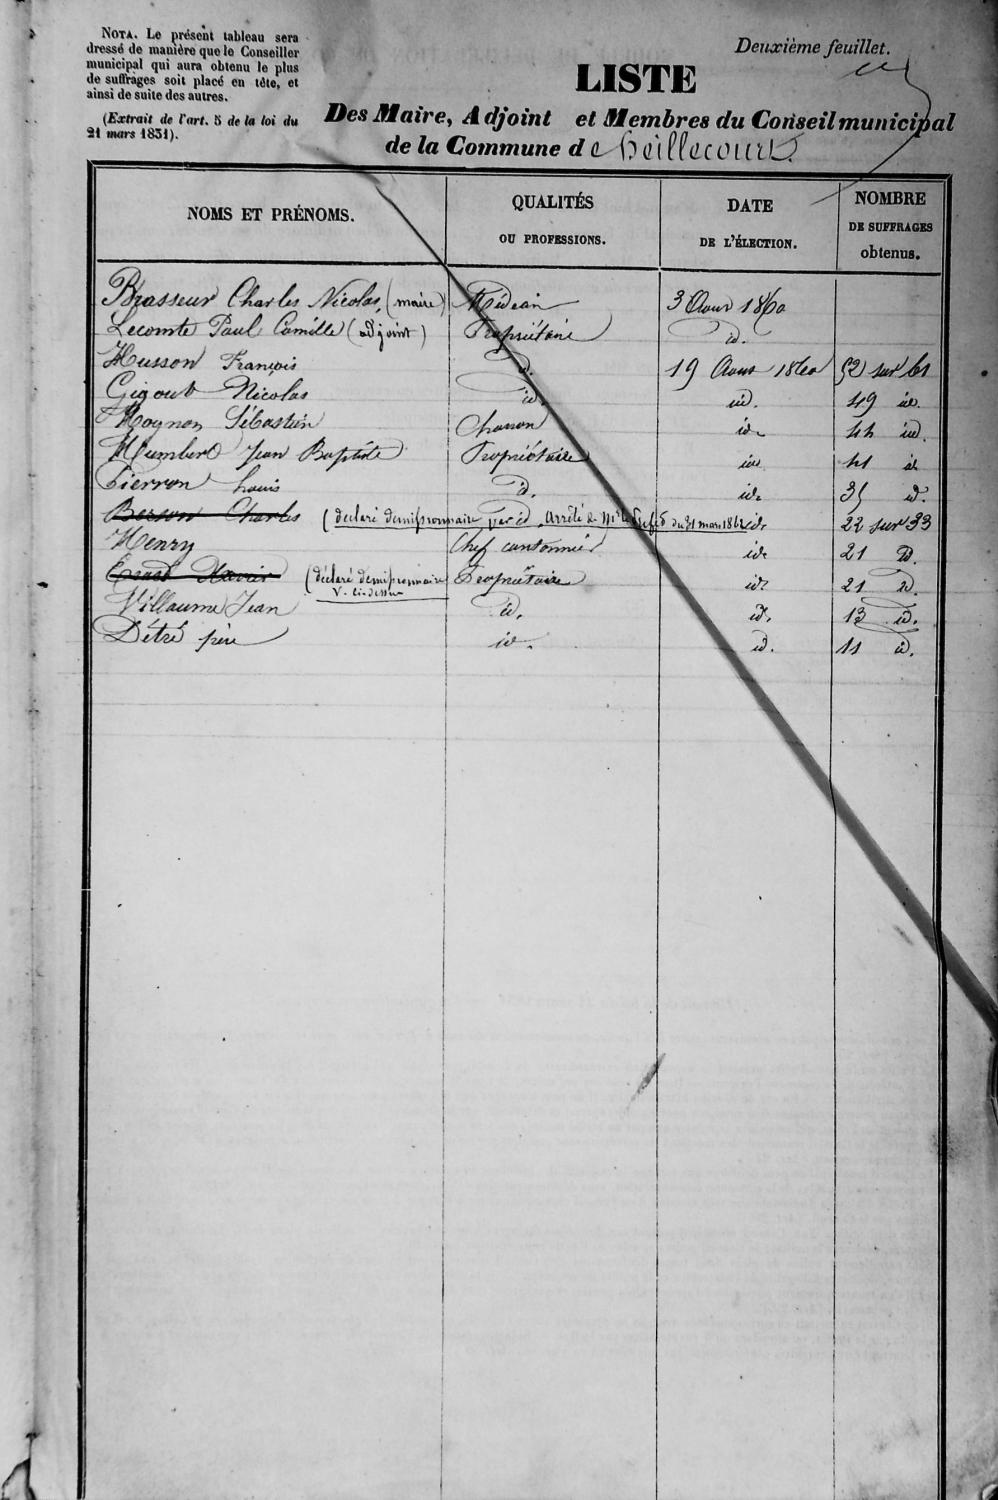 NOTA. Le présent tableau sera
dressé de manière que le Conseiller
municipal qui aura obtenu le plus
de suffrages soit placé en tête, et
ainsi de suite des autres.
(Extrait de l'art. 5 de la loi du
21 mars 1831).
Deuxième feuillet.
LISTE
Des Maire, Adjoint et Membres du Conseil municipal
de la Commune de heillecourt
NOMS ET PRÉNOMS. QUALITÉS OU PROFESSIONS. DATE DE L'ÉLECTION. NOMBRE DE SUFFRAGES obtenus.
Brasseur Charles Nicolas, (maire) Médecin 3 Aout 1860
Lecomte Paul Camille (adjoint) Propriétaire id.
Husson François id. 19 Aout 1860 52 sur 61
Gigout Nicolas id. id. 49 id.
Hognon Sébastien charron id. 44 id.
Humbert Jean Baptiste Propriétaire id. 41 id
Pierron Louis id. id. 35 id.
Berson Charles (déclaré démissionnaire par Arrêté de Mr le Préfet du 31 mars id. 22 sur 33
Henry Chef cantonnier id. 21 id.
Xavier (déclaré démissionnaire Propriétaire id. 21 id.
V. ci-dessus
Villaume Jean id. id. 13 id.
Détré père id. id. 11 id.